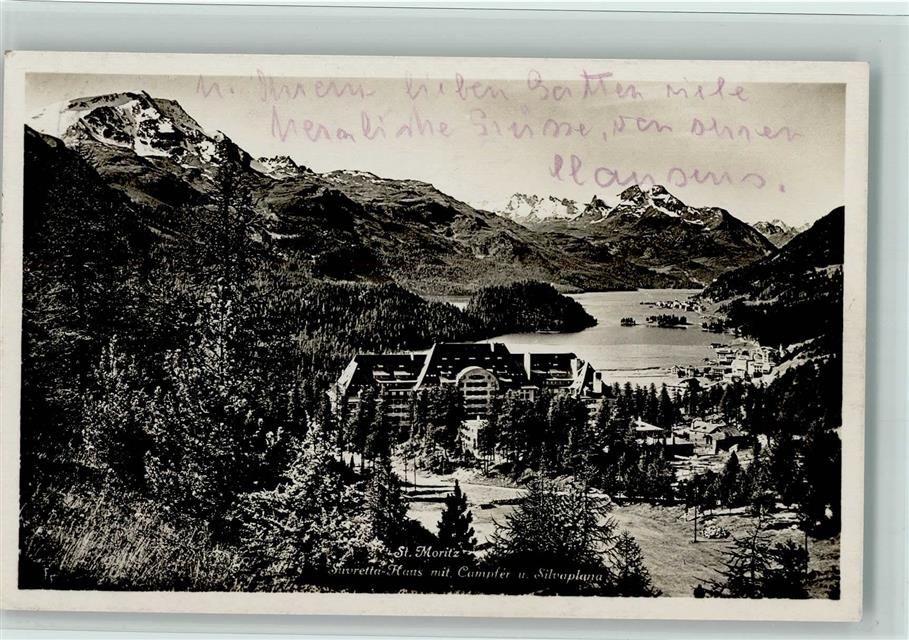 u. Ihrem lieben Gatten viele
herzliche Grüsse, von Ihren
Hansens.
St. Moritz
Suvretta-Haus mit Campfèr u. Silvaplana